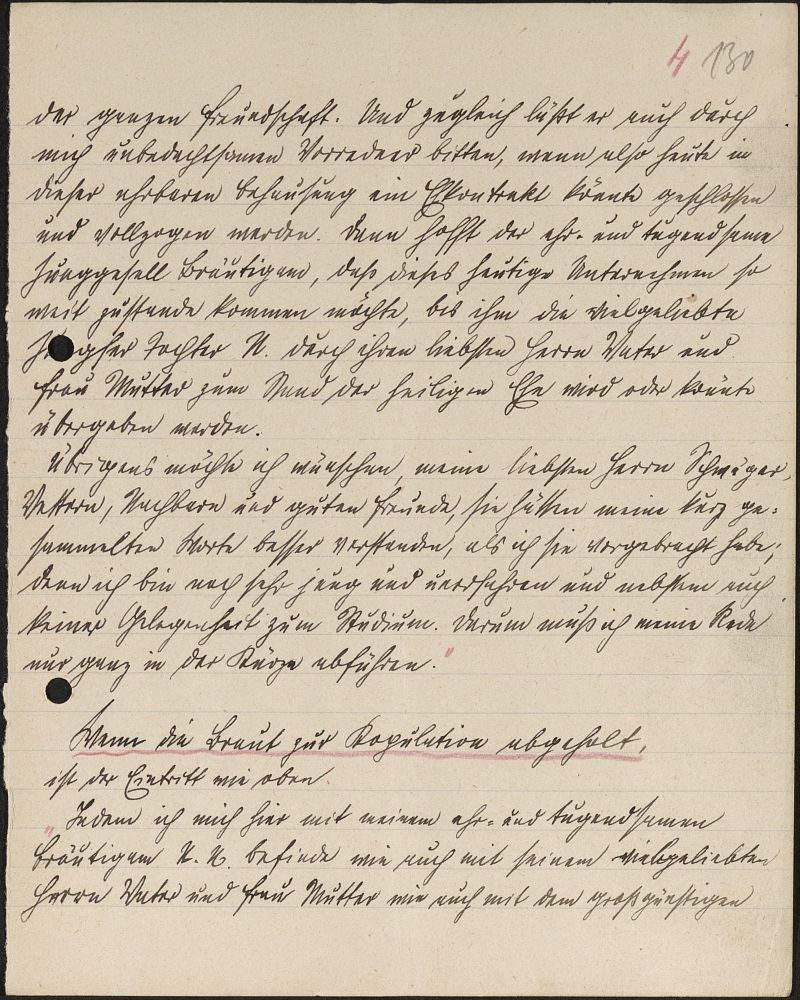 4 130
der ganzen Freundschaft. Und zugleich läßt er auch durch
mich unbedachtsamen Vorredner bitten, wenn also heute in
dieser ehrbaren Behausung ein Ehkontrakt könnte geschlossen
und vollzogen werden. Dann hofft der ehr- und tugendsame
Junggesell Bräutigam, daß dieses heutige Unternehmen so
weit zustande kommen möchte, bis ihm die vielgeliebte
Jungfer Tochter N. durch ihren liebsten Herrn Vater und
Frau Mutter zum Stand der heiligen Ehe wird oder könnte
übergeben werden.
Übrigens möchte ich wünschen, meine liebsten Herrn Schwäger,
Vettern, Nachbarn und guten Freunde, sie hätten meine kurz ge-
sammelten Worte besser verstanden, als ich sie vorgebracht habe;
denn ich bin noch sehr jung und unerfahren und nebstem auch
keiner Gelegenheit zum Studium. Darum muß ich meine Rede
nur ganz in der Kürze abführen."
Wenn die Braut zur Kopulation abgeholt,
ist der Eintritt wie oben.
"Indem ich mich hier mit meinem ehr- und tugendsamen
Bräutigam N. N. befinde wie auch mit seinem vielgeliebten
Herrn Vater und Frau Mutter wie auch mit dem großgünstigen